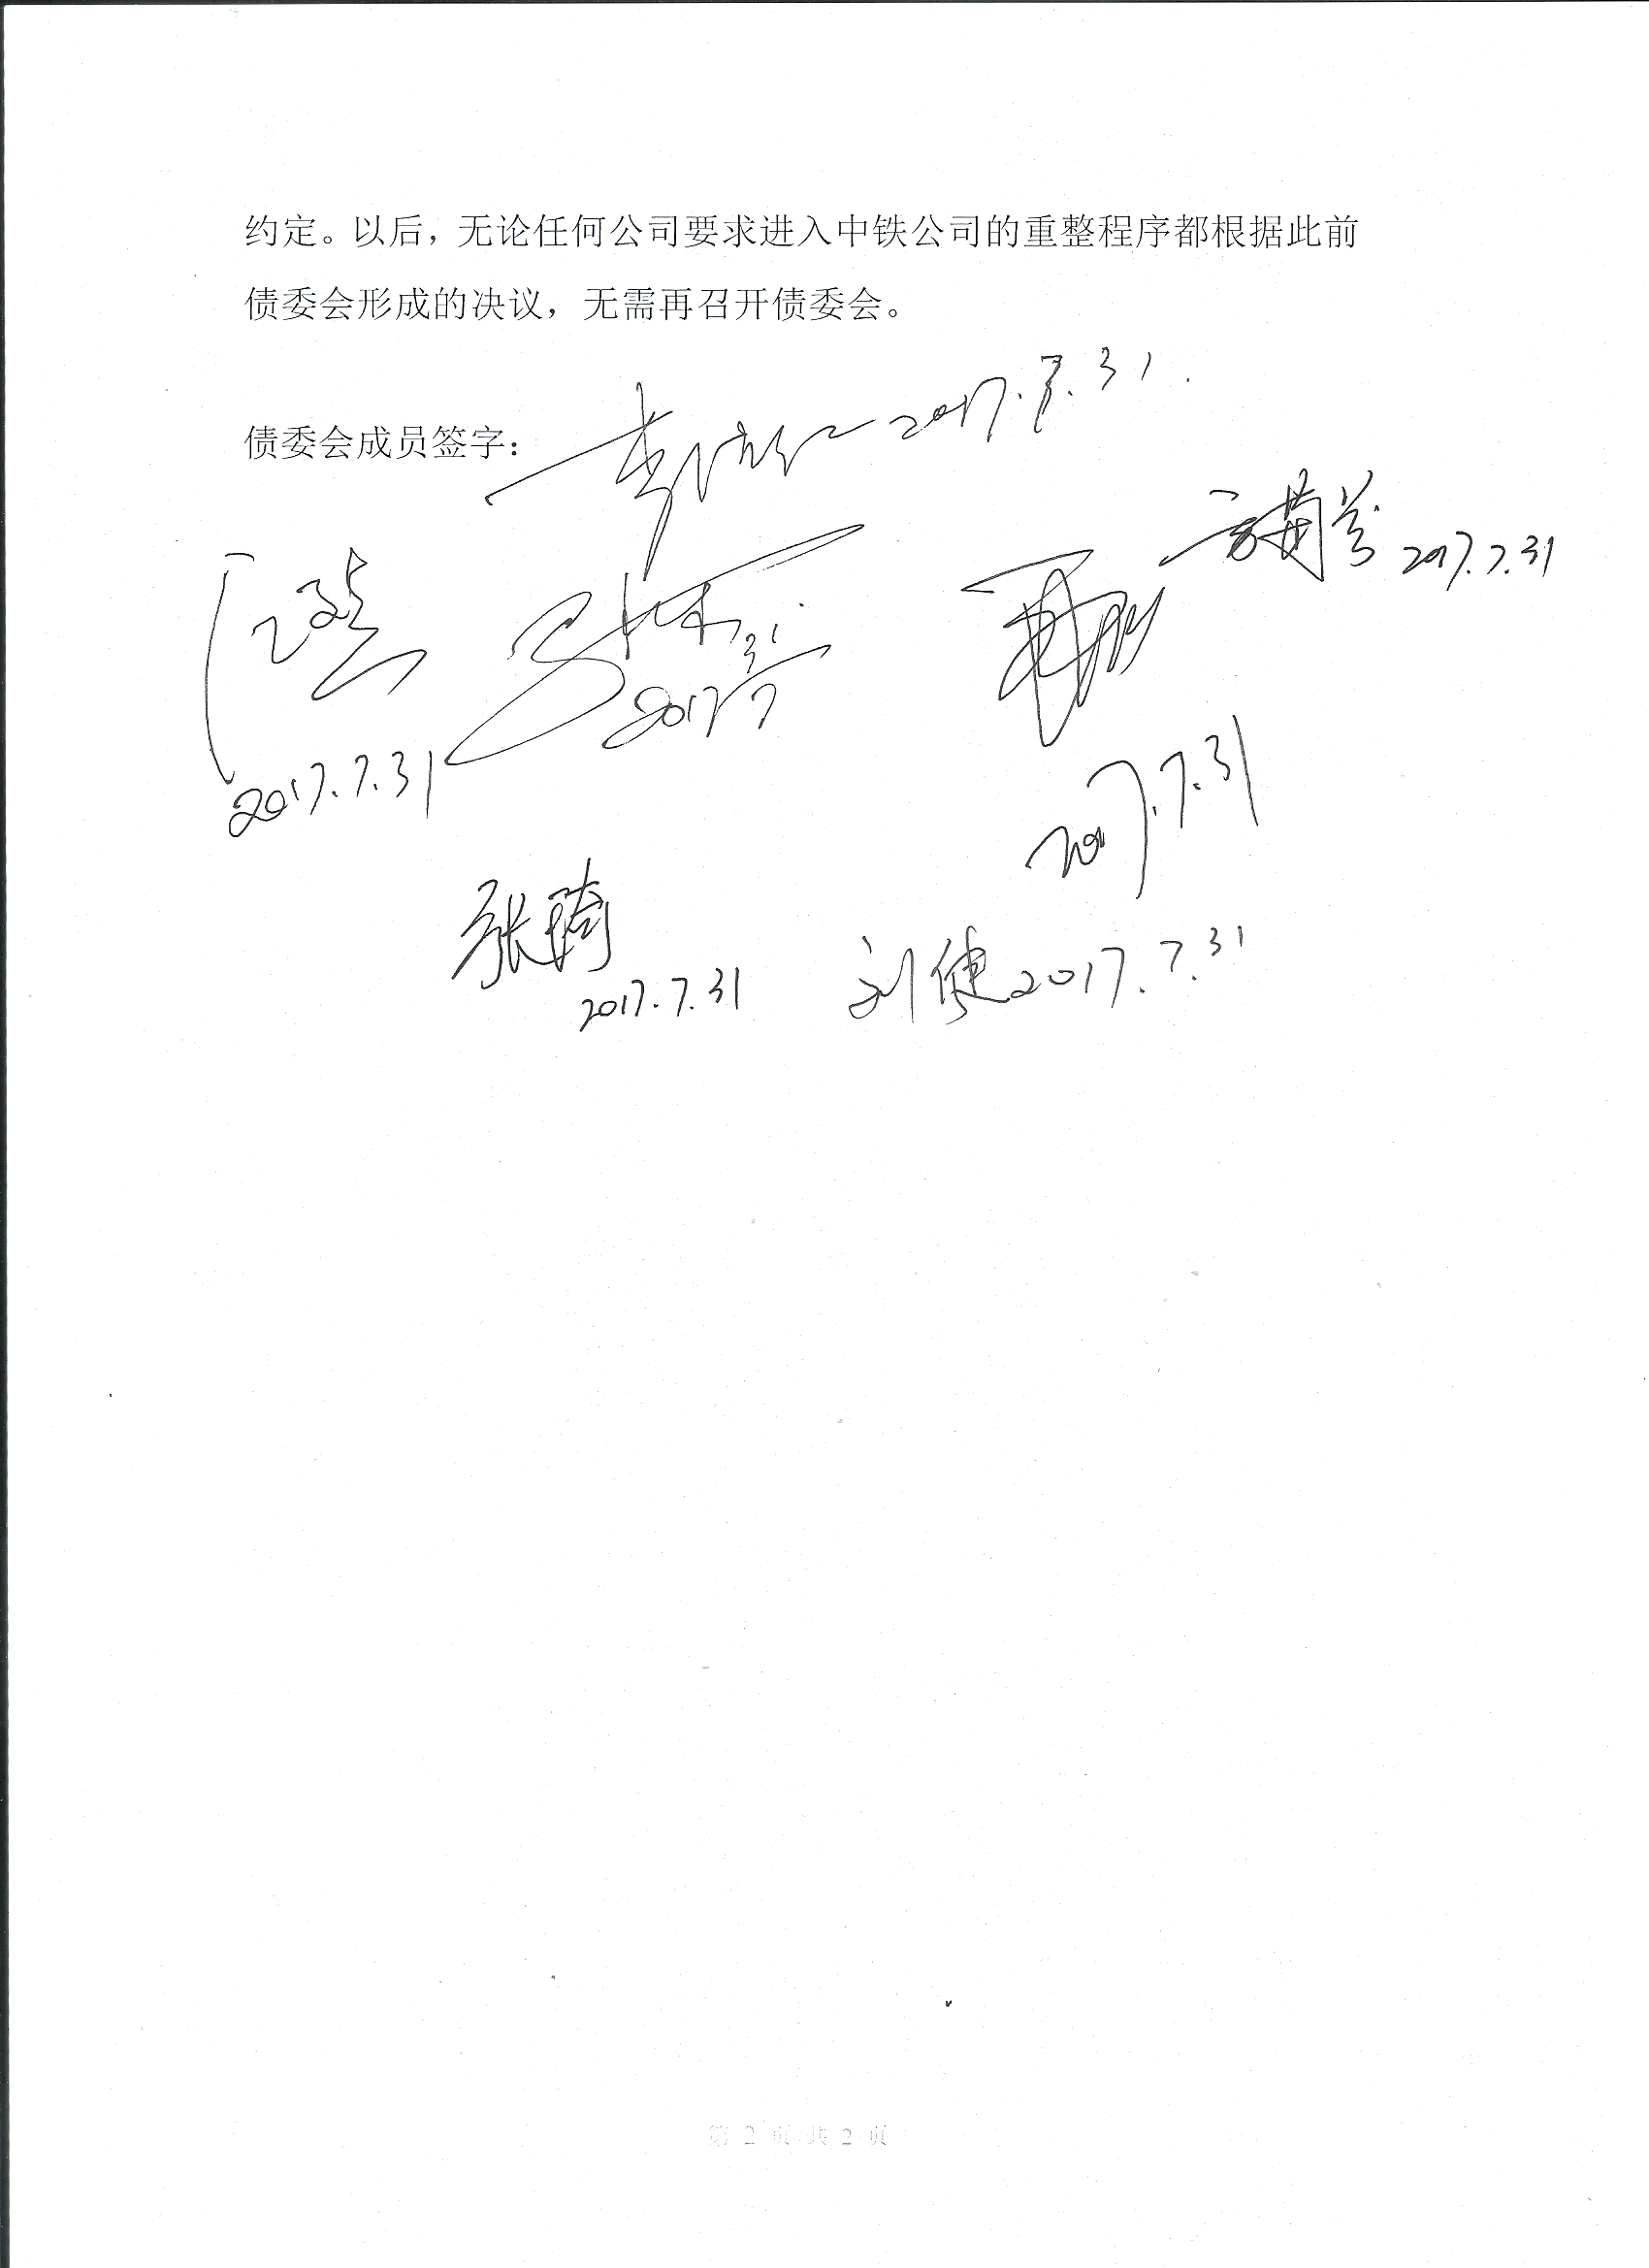 约定。以后，无论任何公司要求进入中铁公司的重整程序都根据此前
债委会形成的决议，无需再召开债委会。
债委会成员签字：
2017.7.31.
2017.7.31
2017.7.31
2017.7.31
2017.7.31
张琦
2017.7.31
刘健 2017.7.31
第 2 页 共 2 页